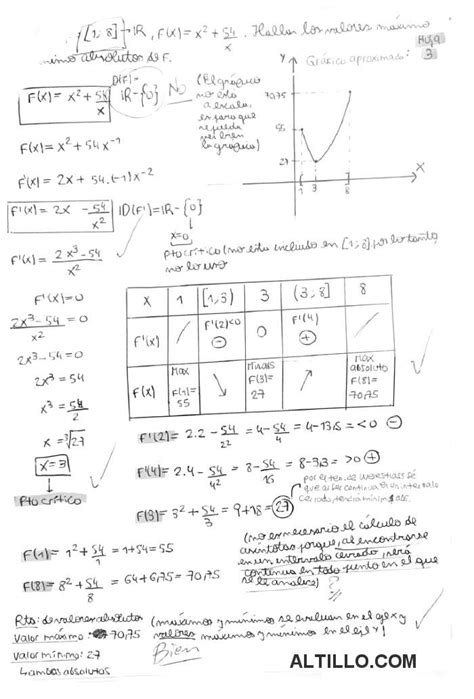 [1, 8] → IR, F(x) = x² + 54/x. Hallar los valores máximo
mínimo absolutos de F.
Hoja
3
D(F) =
F(x) = x² + 54/x
IR - {0}
No
(El gráfico
no está
a escala,
es para que
se pueda
ver bien
la gráfica)
Gráfico aproximado:
Y
70,75
55
27
1 3 8
X
F(x) = x² + 54x⁻¹
F'(x) = 2x + 54.(-1)x⁻²
F'(x) = 2x - 54/x²
ID(F') = IR - {0}
x=0
Pto crítico (no está incluido en [1; 8] por lo tanto
no lo uso
F'(x) = 2x³ - 54/x²
F'(x) = 0
2x³ - 54/x² = 0
2x³ - 54 = 0
2x³ = 54
x³ = 54/2
x = ³√27
x = 3
Pto crítico
X 1 [1;3) 3 (3;8] 8
F'(x) / F'(2)<0 ⊖ 0 F'(4) ⊕ /
F(x) Max F(1)= 55 ↘ F(3)= 27 ↗ Max absoluto F(8)= 70,75
F'(2) = 2.2 - 54/2² = 4 - 54/4 = 4 - 13,5 = <0 ⊖
F'(4) = 2.4 - 54/4² = 8 - 54/16 = 8 - 3,3 = >0 ⊕
F(3) = 3² + 54/3 = 9 + 18 = 27
por el teo. de Weierstrass sé
que al ser continua en un intervalo
cerrado, tendrá mínimo abs.
F(1) = 1² + 54/1 = 1 + 54 = 55
F(8) = 8² + 54/8 = 64 + 6,75 = 70,75
(no es necesario el cálculo de
asíntotas porque, al encontrarse
en un intervalo cerrado, será
continua en todo punto en el que
se le analice)
Rta: de valores absolutos (máximos y mínimos se evaluan en el eje x y
Valor máximo: 70,75 valores máximos y mínimos en el eje Y)
Valor mínimo: 27
Bien
↳ ambos absolutos
ALTILLO.COM